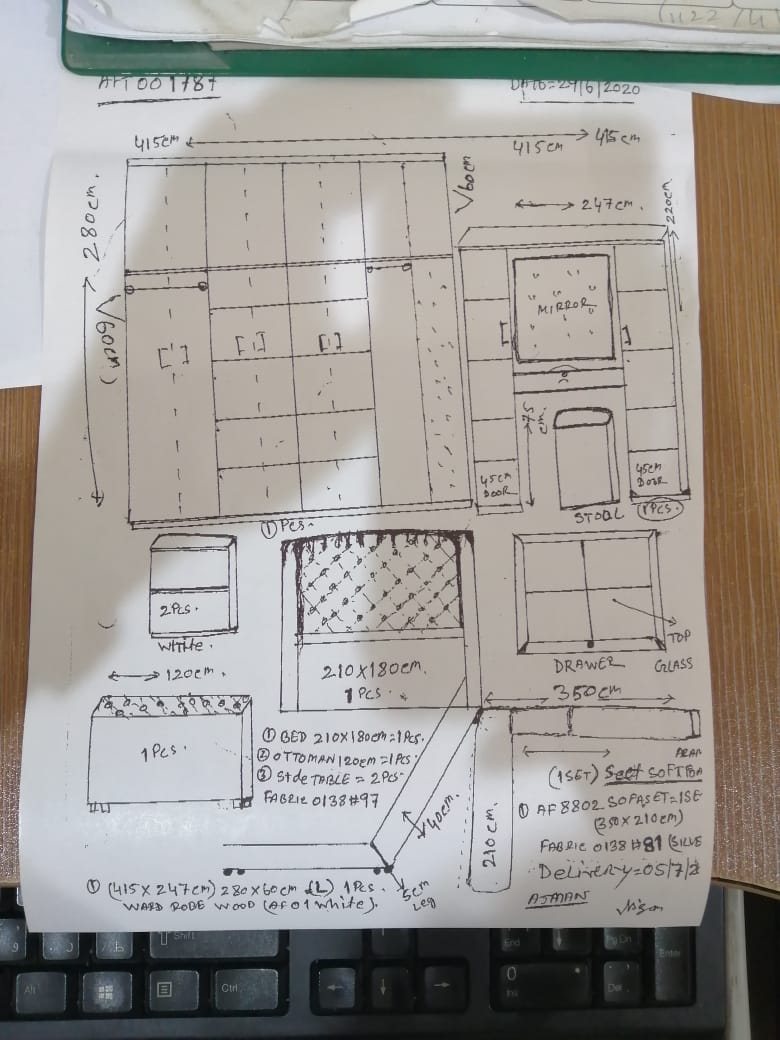 AFT 001787
DATE=29/6/2020
415cm
415cm
415cm
280cm.
60cm
60cm
247cm.
220cm
MIRROR
75
cm.
45cm
DOOR
45cm
DOOR
STOOL
1Pcs.
① Pcs.
2Pcs.
White.
210x180cm.
1 Pcs.
DRAWER
TOP
GLASS
120cm.
1Pcs.
350cm
① BED 210x180cm=1Pcs.
② OTTOMAN 120cm=1Pcs.
③ Side TABLE = 2Pcs.
FABRIC 0138#97
(1SET)
① AF 8802 SOFASET=1SE
(350x210cm)
FABRIC 0138#81 (SILVE
Delivery=05/7/2
AJMAN
40cm.
210cm.
5cm
Leg
① (415x247cm) 280x60cm (L) 1Pcs.
WARD ROBE WOOD (AF01 White).
Shift
Alt
Ctrl
End
Pg Dn
Enter
0
Ins
Del